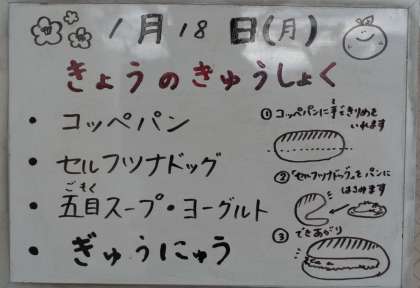 1月18日(月)
きょうのきゅうしょく
・コッペパン
・セルフツナドッグ
ごもく
・五目スープ・ヨーグルト
・ぎゅうにゅう
①コッペパンに手できりめを
いれます
②「セルフツナドッグ」をパンに
はさみます
③できあがり